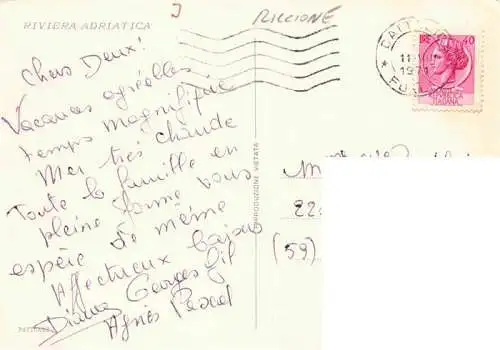 RIVIERA ADRIATICA
RICCIONE
Chers Deux!
Vacances agréables
temps magnifique
Mer très chaude
Toute la famille en
pleine forme vous
espère de même
Affectueux baisers
Georges Gil
Diana
Agnès Pascal
RIPRODUZIONE VIETATA
CATT
11
1971
FO
Lire 40
ITALIANA
22
(59)